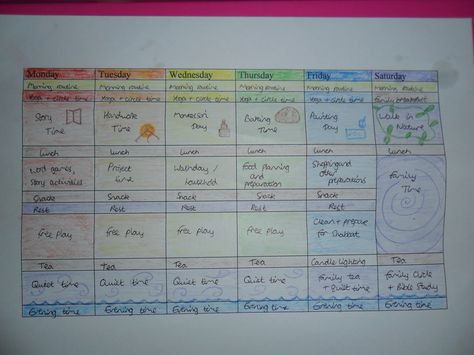 Monday Tuesday Wednesday Thursday Friday Saturday
Morning routine Morning routine Morning routine Morning routine Morning routine Morning routine
Yoga + circle time Yoga + circle time Yoga + circle time Yoga + circle time Yoga + circle time Family breakfast
Story Handwork Montessori Baking Painting Walk in
Time Time Day Time Day Nature
Lunch Lunch Lunch Lunch Lunch Lunch
Word games, Project Washday / Food planning Shopping and Family
story activities time household and other Time
preparation preparations
Snack Snack Snack Snack Snack
Rest Rest Rest Rest Rest
free play free play free play free play Clean + prepare
for Shabbat
Tea Tea Tea Tea Candle lighting Tea
Quiet time Quiet time Quiet time Quiet time Family tea Family Circle
+ Quiet time + Bible Study
Evening time Evening time Evening time Evening time Evening time Evening time